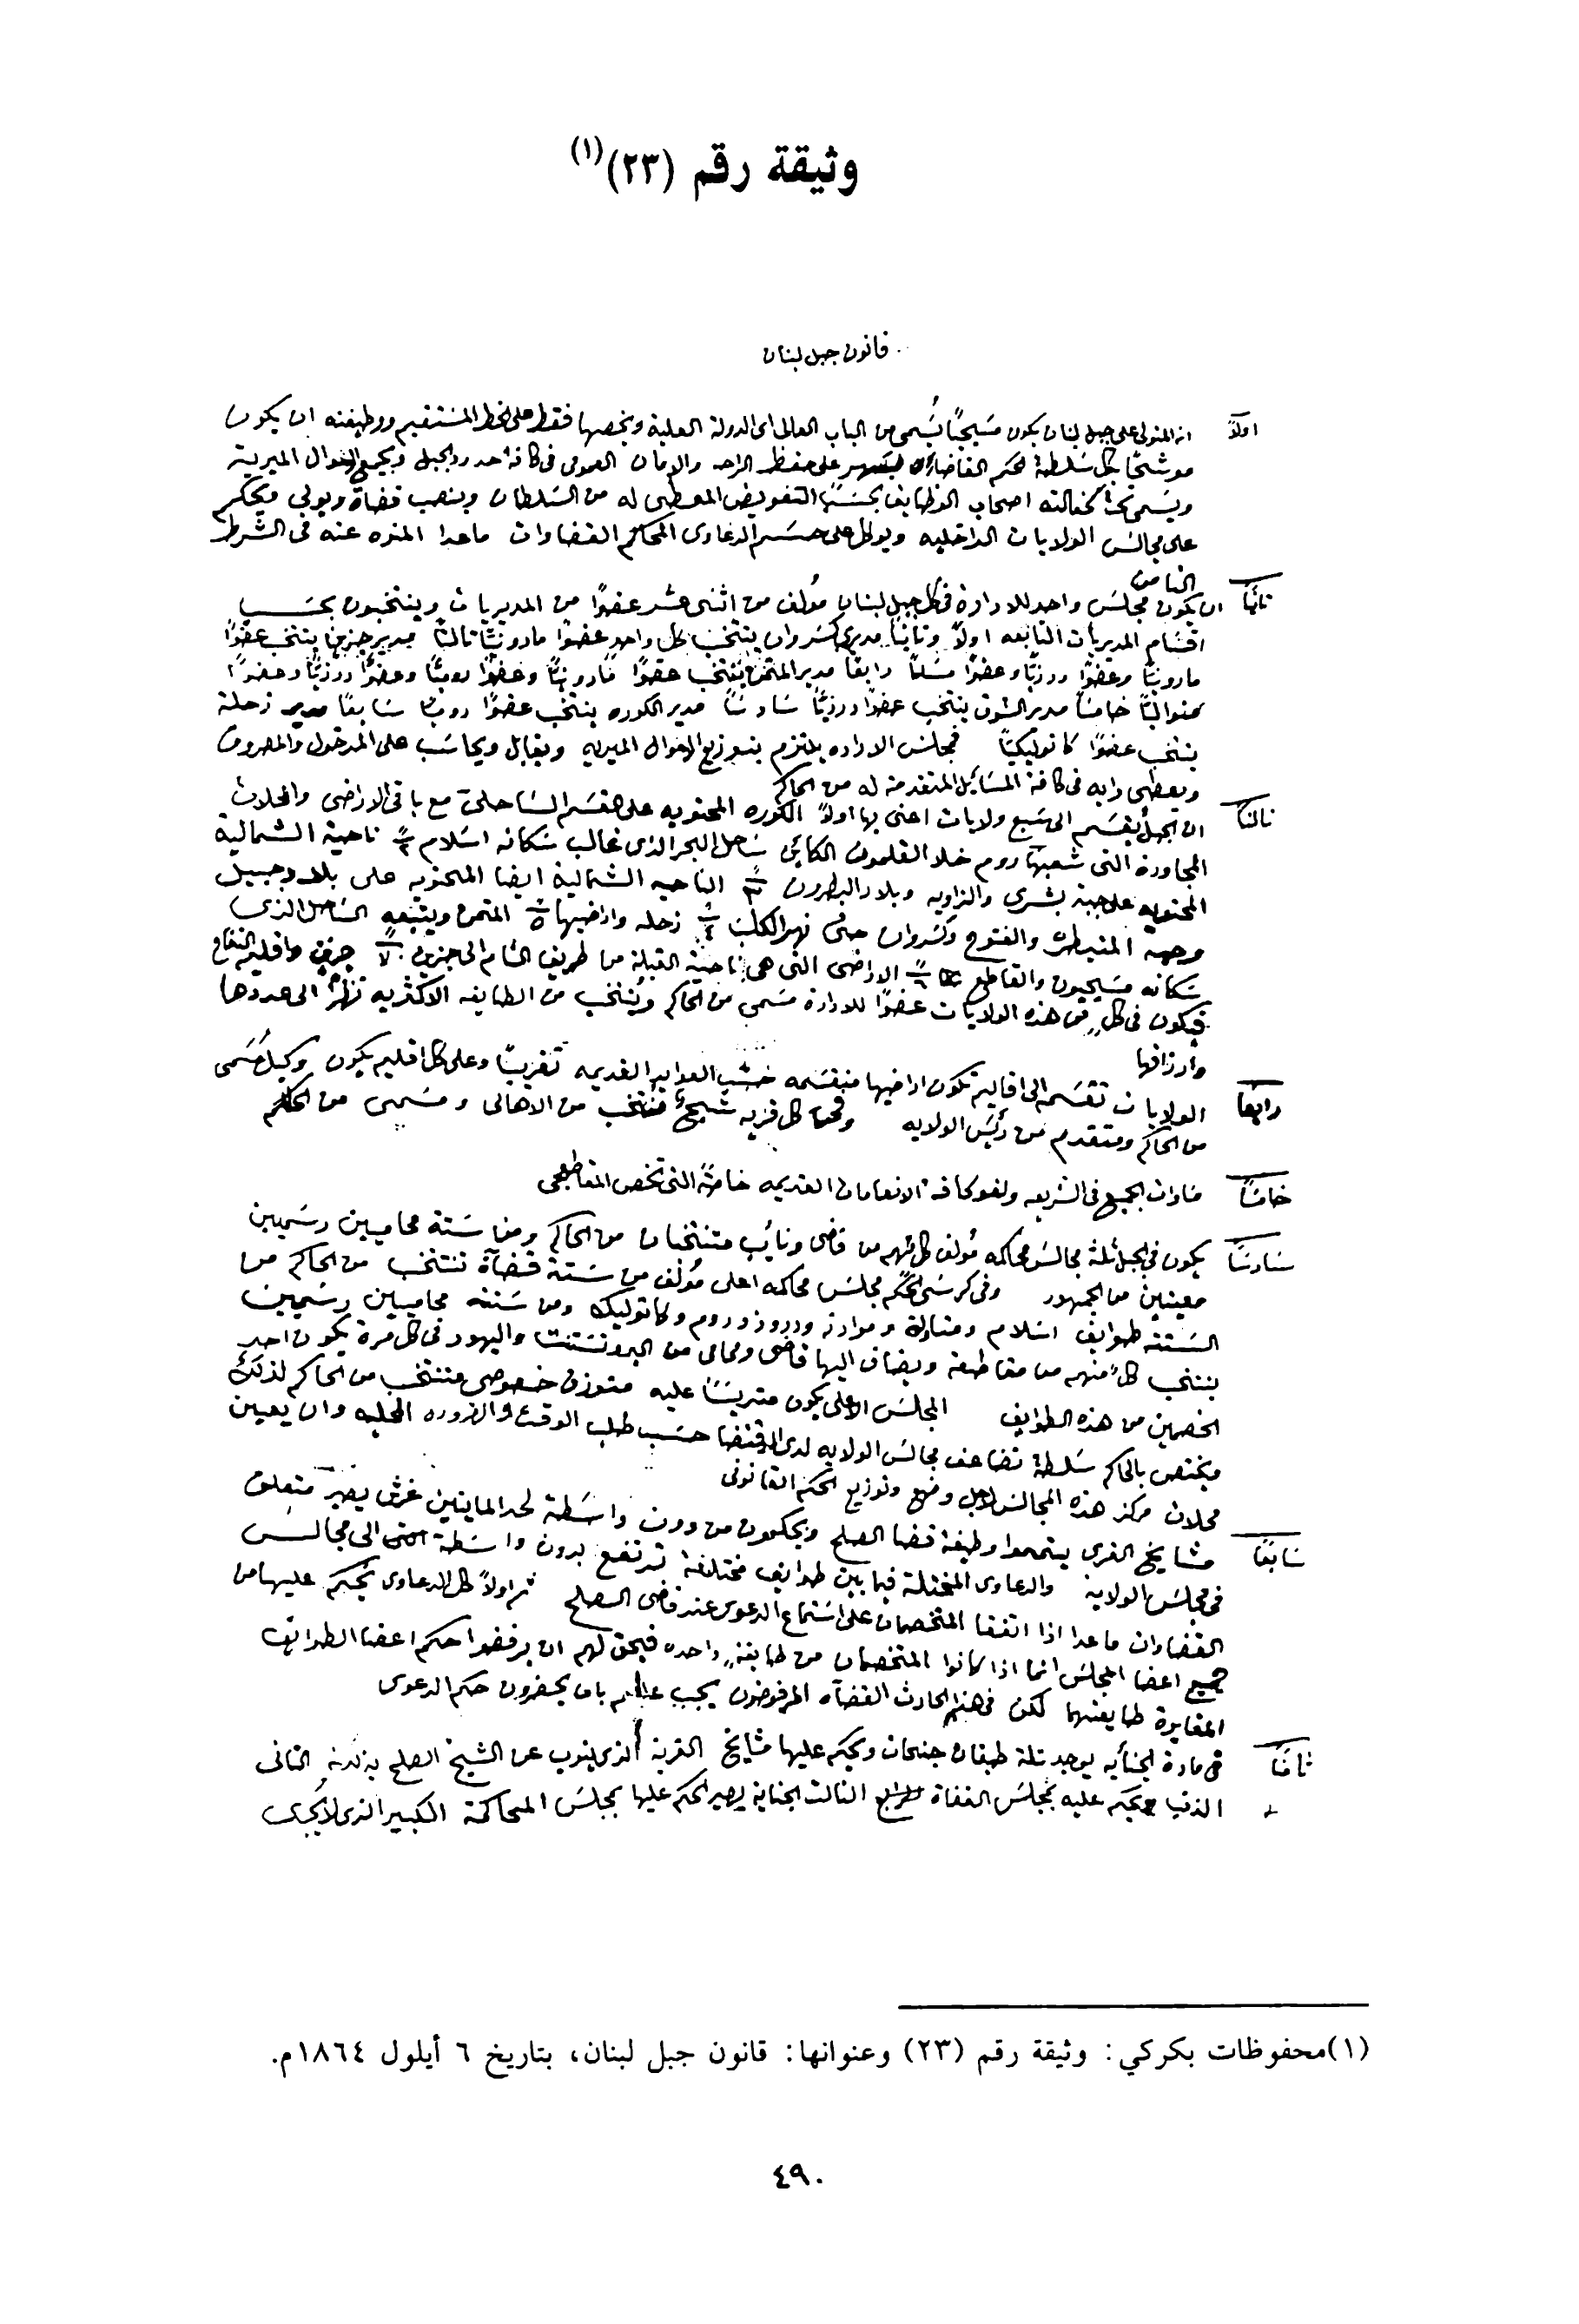 وثيقة رقم (٢٣)(١)
قانون جبل لبنان
اولاً ان المتولي على جبل لبنان يكون مسيحيًا يُسمى من الباب العالي اى الدولة العلية ويخصها فقط على الخط المستقيم ووظيفته ان يكون
موشحًا بكل سلطة لحكم القضا ليسهر على حفظ الراحه والامان العمومى فى كافة حدود الجبل ويجمع الاموال الميرية
ويسمى تحت كفالته اصحاب الوظايف بحسب التفويض المعطى له من السلطان وينصب قضاة ويولي ويحكم
على مجالس الولايات الداخليه ويوكل على حسم الدعاوى المحاكم القضاوات ماعدا المنوه عنه فى الشرط
الثامن
ثانيًا ان يكون مجلس واحد للادارة فى كل جبل لبنان مُولف من اثنى عشر عضوًا من المديريات وينتخبون بحسب
اقسام المديريات التابعه اولاً وثانيًا مديرى كسروان ينتخب كل واحد عضوًا مارونيًا ثالثًا مدير جزين ينتخب عضوًا
مارونيًا وعضوًا درزيًا وعضوًا مسلمًا رابعًا مدير المتن ينتخب عضوًا مارونيًا وعضوًا روميًا وعضوًا درزيًا وعضوًا
متواليًا خامسًا مدير الشوف ينتخب عضوًا درزيًا سادسًا مدير الكوره ينتخب عضوًا روميًا سابعًا مدير زحلة
ينتخب عضوًا كاثوليكيًا فمجلس الاداره يلتزم بتوزيع الاموال الميريه ويقابل ويحاسب على المدخول والمصروف
ويعطى رايه فى كافة المسايل المتقدمة له من الحاكم
ثالثًا ان الجبل يقسم الى سبع ولايات اعنى بها اولاً الكوره المحتويه على القسم الساحلى مع باقى الاراضى والمحلات
المجاورة التى شعبها روم خلا القلمون الكاين ساحل البحر الذى غالب سكانه اسلام ٢ ناحية الشمالية
المحتويه على جبة بشرى والزاويه وبلاد البطرون ٣ الناحيه الشمالية ايضا المحتويه على بلاد جبيل
وجبه المنيطره والفتوح وكسروان حتى نهر الكلب ٤ زحله واراضيها ٥ المتن ويتبعه الساحل الذى
سكانه مسيحيون والقاطع ٦ الاراضى التى هى ناحية القبلة من طريق الشام الى جزين ٧ جزين واقليم التفاح
فيكون فى كل من هذه الولايات عضوًا للادارة مسمى من الحاكم ويُنتخب من الطايفه الاكثريه نظرًا الى عددها
وارزاقها
رابعًا الولايات تقسم الى اقاليم تكون اراضيها منقسمه حسب العوايد القديمه تقريبًا وعلى كل اقليم يكون وكيل مُسمى
من الحاكم ومتقدم من رئيس الولايه وفى كل قريه شيخ منتخب من الاهالى ومسمى من الحاكم
خامسًا مساوات الجميع فى الشريعه ولغو كافة الانعامات القديمه خاصةً التى تخص المقاطعجى
سادسًا يكون فى الجبل ثلثة مجالس محاكمه مُولف كل منهم من قاضى ونايب منتخبان من الحاكم ومن ستة محاميين رسميين
معينين من الجمهور وفى كرسى الحكم مجلس محاكمه اعلى مُولف من ستة قضاة تنتخب من الحاكم من
الستة طوايف اسلام ومتاولة وموارنه ودروز وروم وكاتوليك ومن ستة محاميين رسميين
ينتخب كلٌ منهم من مقاطعة ويضاف اليها قاضى ومحامى من البروتستنت واليهود فى كل مرة يكون احد
الخصمين من هذه الطوايف المجلس الاعلى يكون متريسًا عليه خصوصى منتخب من الحاكم لذلك
ويختص بالحاكم سلطة تضاعف مجالس الولايه لدى الاقتضا حسب طلب الوقت والضروره المحليه وان يعين
محلات مركز هذه المجالس لاجل وضع وتوزيع الحكم القانونى
سابعًا مشايخ القرى يتمموا وظيفة قضا الصلح ويحكمون من دون واسطة لحد المايتين غرش يصير متعلق
فى مجلس الولاية والدعاوى المختلة فيما بين طوايف مختلفة ترتفع بدون واسطة الى مجالس
القضاوات ماعدا اذا اتفقا المتخصمان على استماع الدعوى عند قاضى الصلح ثم اولاً كل الدعاوى يُحكم عليها من
جميع اعضا المجلس انما اذا كانوا المتخصمان من طايفةٍ واحده فيحق لهم ان يرفضوا حكم اعضا الطوايف
المغايرة طايفتهما لكن فى هذه الحادث القضاه المرفوضون يجب بان يحضرون حكم الدعوى
ثامنًا فى مادة الجنايه يوجد ثلة طبقات جنحات ويحكم عليها مشايخ القرية الذى ينوب عن الشيخ الصلح الثانى
الذنب يحكم عليه بمجلس القضاة الثالث الجناية يصير الحكم عليها بمجلس المحاكمة الكبير الذى لايُجرى
(١) محفوظات بكركي: وثيقة رقم (٢٣) وعنوانها: قانون جبل لبنان، بتاريخ ٦ أيلول ١٨٦٤م.
٤٩٠